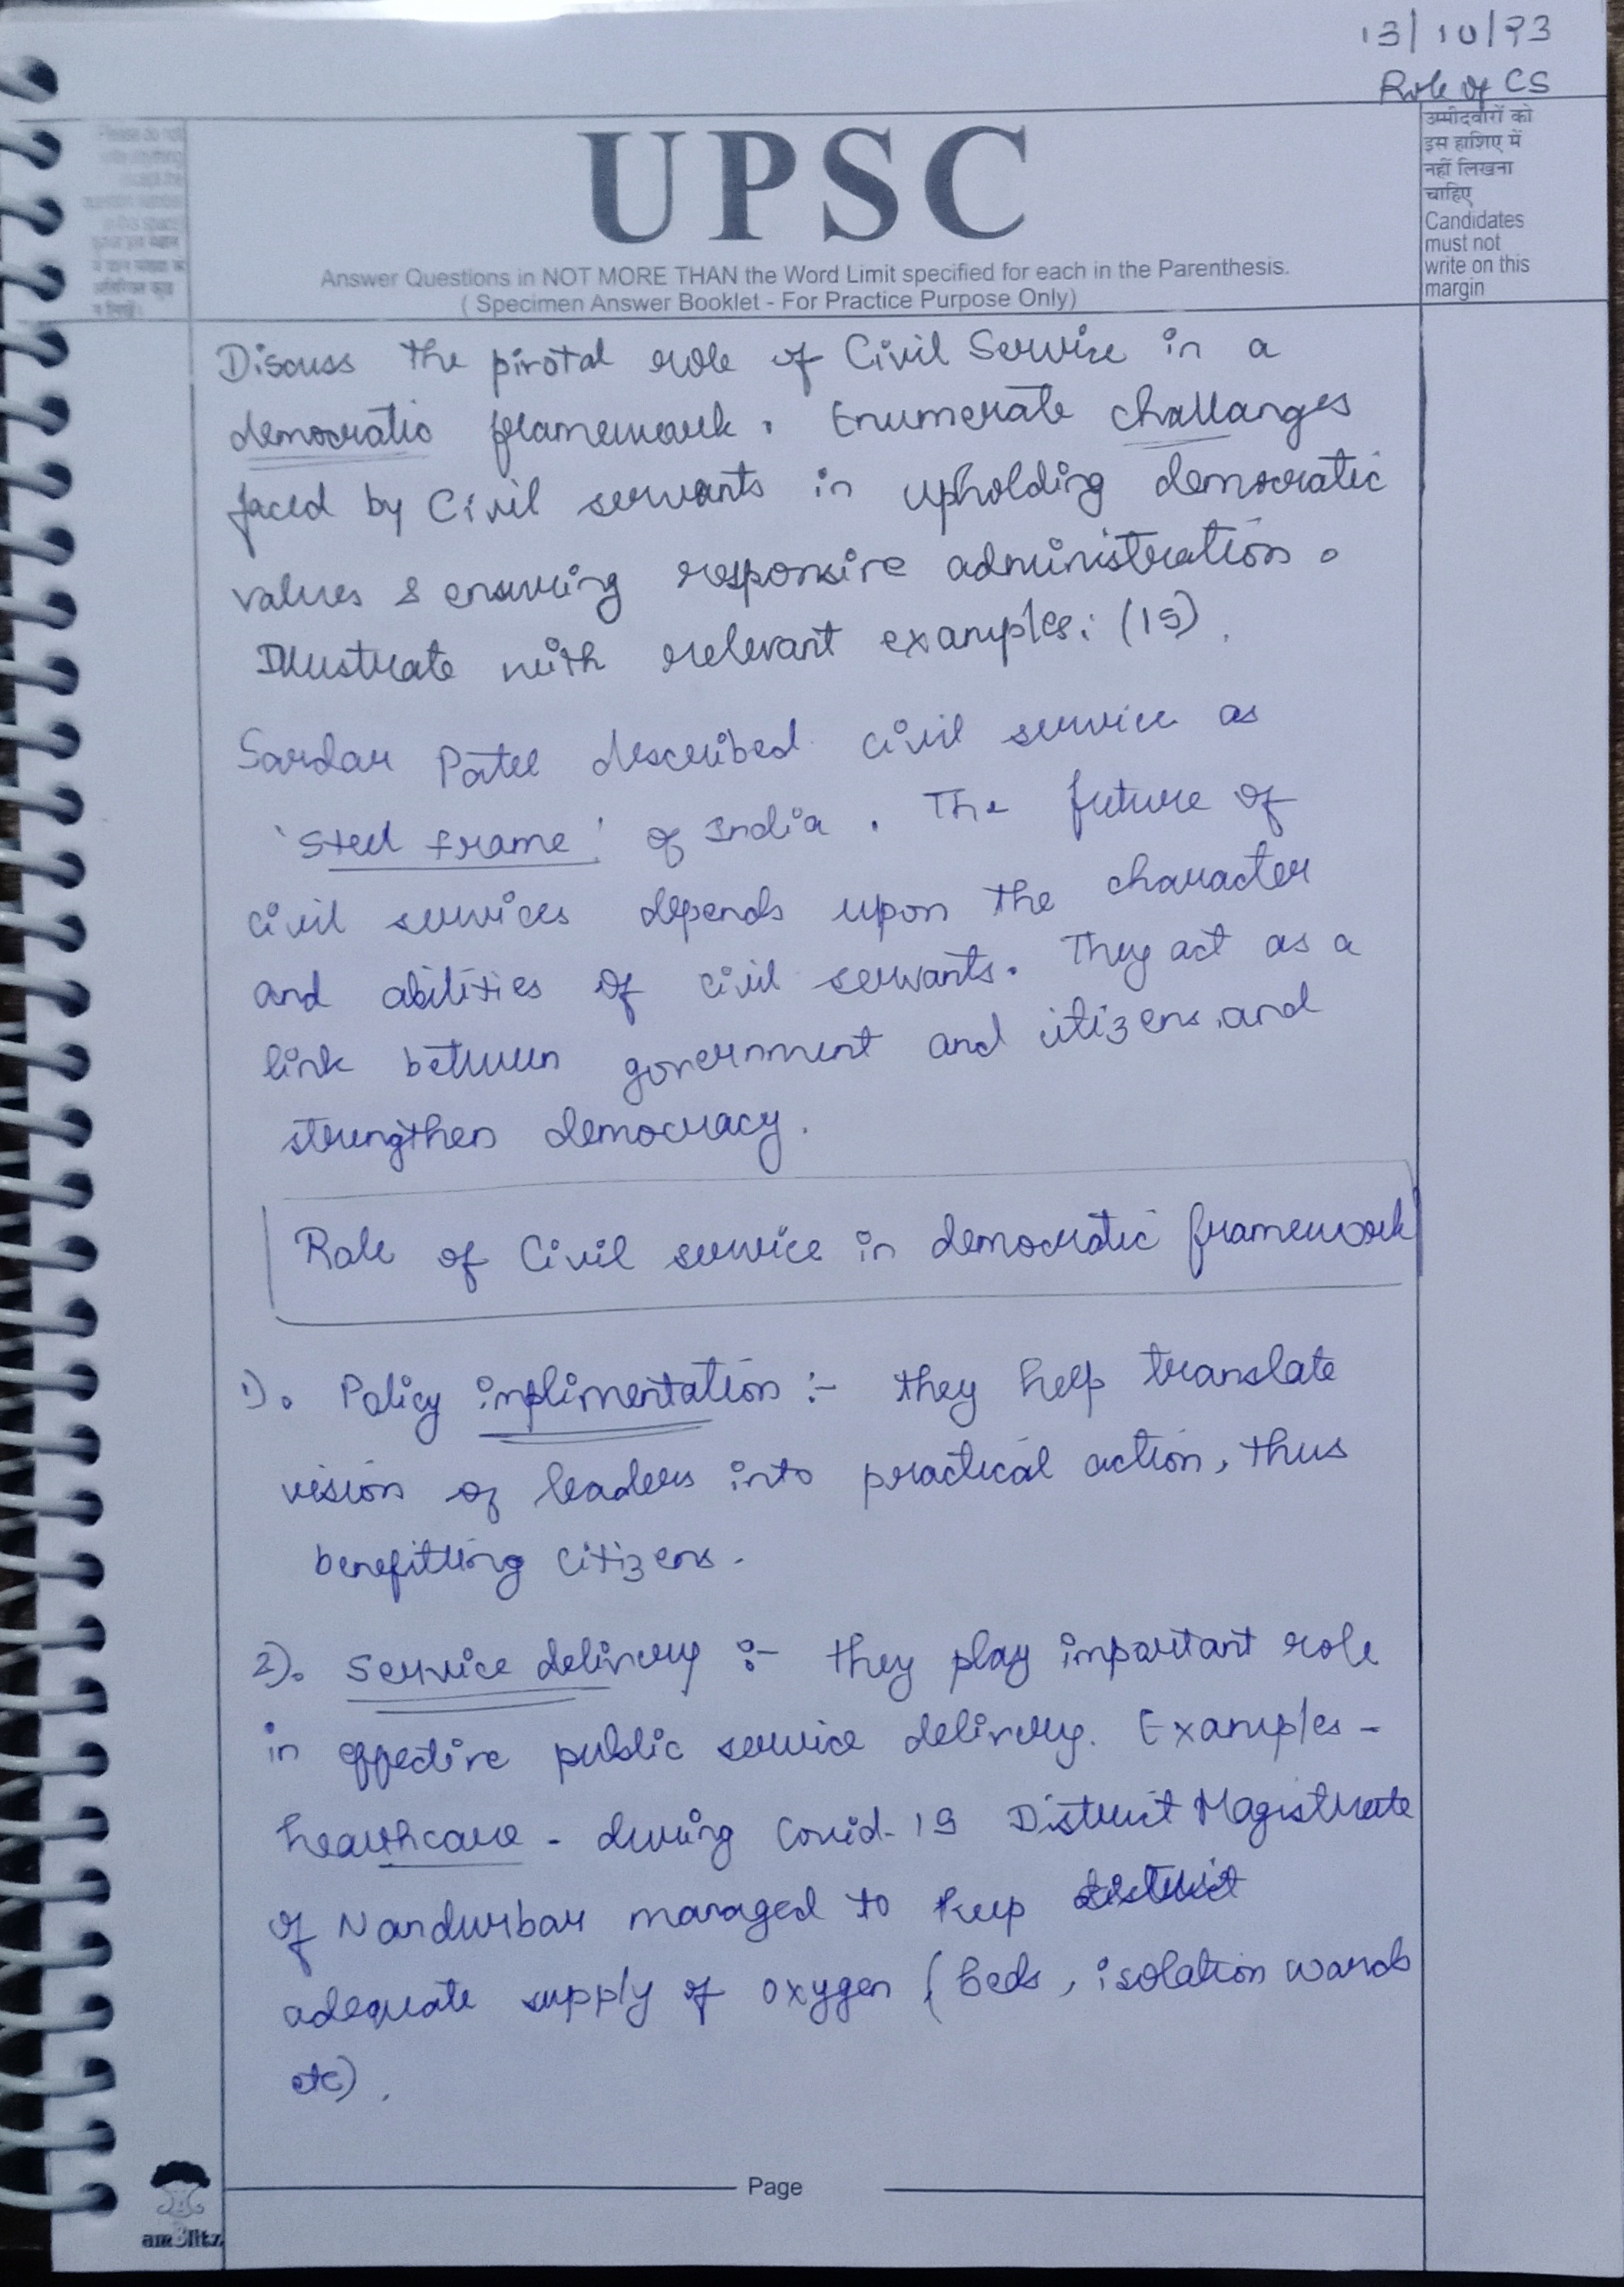 13/10/23
Role of CS
UPSC
Answer Questions in NOT MORE THAN the Word Limit specified for each in the Parenthesis.
( Specimen Answer Booklet - For Practice Purpose Only)
उम्मीदवारों को
इस हाशिए में
नहीं लिखना
चाहिए
Candidates
must not
write on this
margin
Discuss the pivotal role of Civil Service in a
democratic framework. Enumerate challanges
faced by Civil servants in upholding democratic
values & ensuring responsive administration.
Illustrate with relevant examples: (15).
Sardar Patel described civil service as
'Steel frame' of India. The future of
civil services depends upon the character
and abilities of civil servants. They act as a
link between government and citizens and
strengthen democracy.
Role of Civil service in democratic framework
1). Policy implimentation :- they help translate
vision of leaders into practical action, thus
benefitting citizens.
2). Service delivery :- they play important role
in effective public service delivery. Examples -
healthcare - during Covid-19 District Magistrate
of Nandurbar managed to keep district
adequate supply of oxygen (beds, isolation wards
etc).
Page